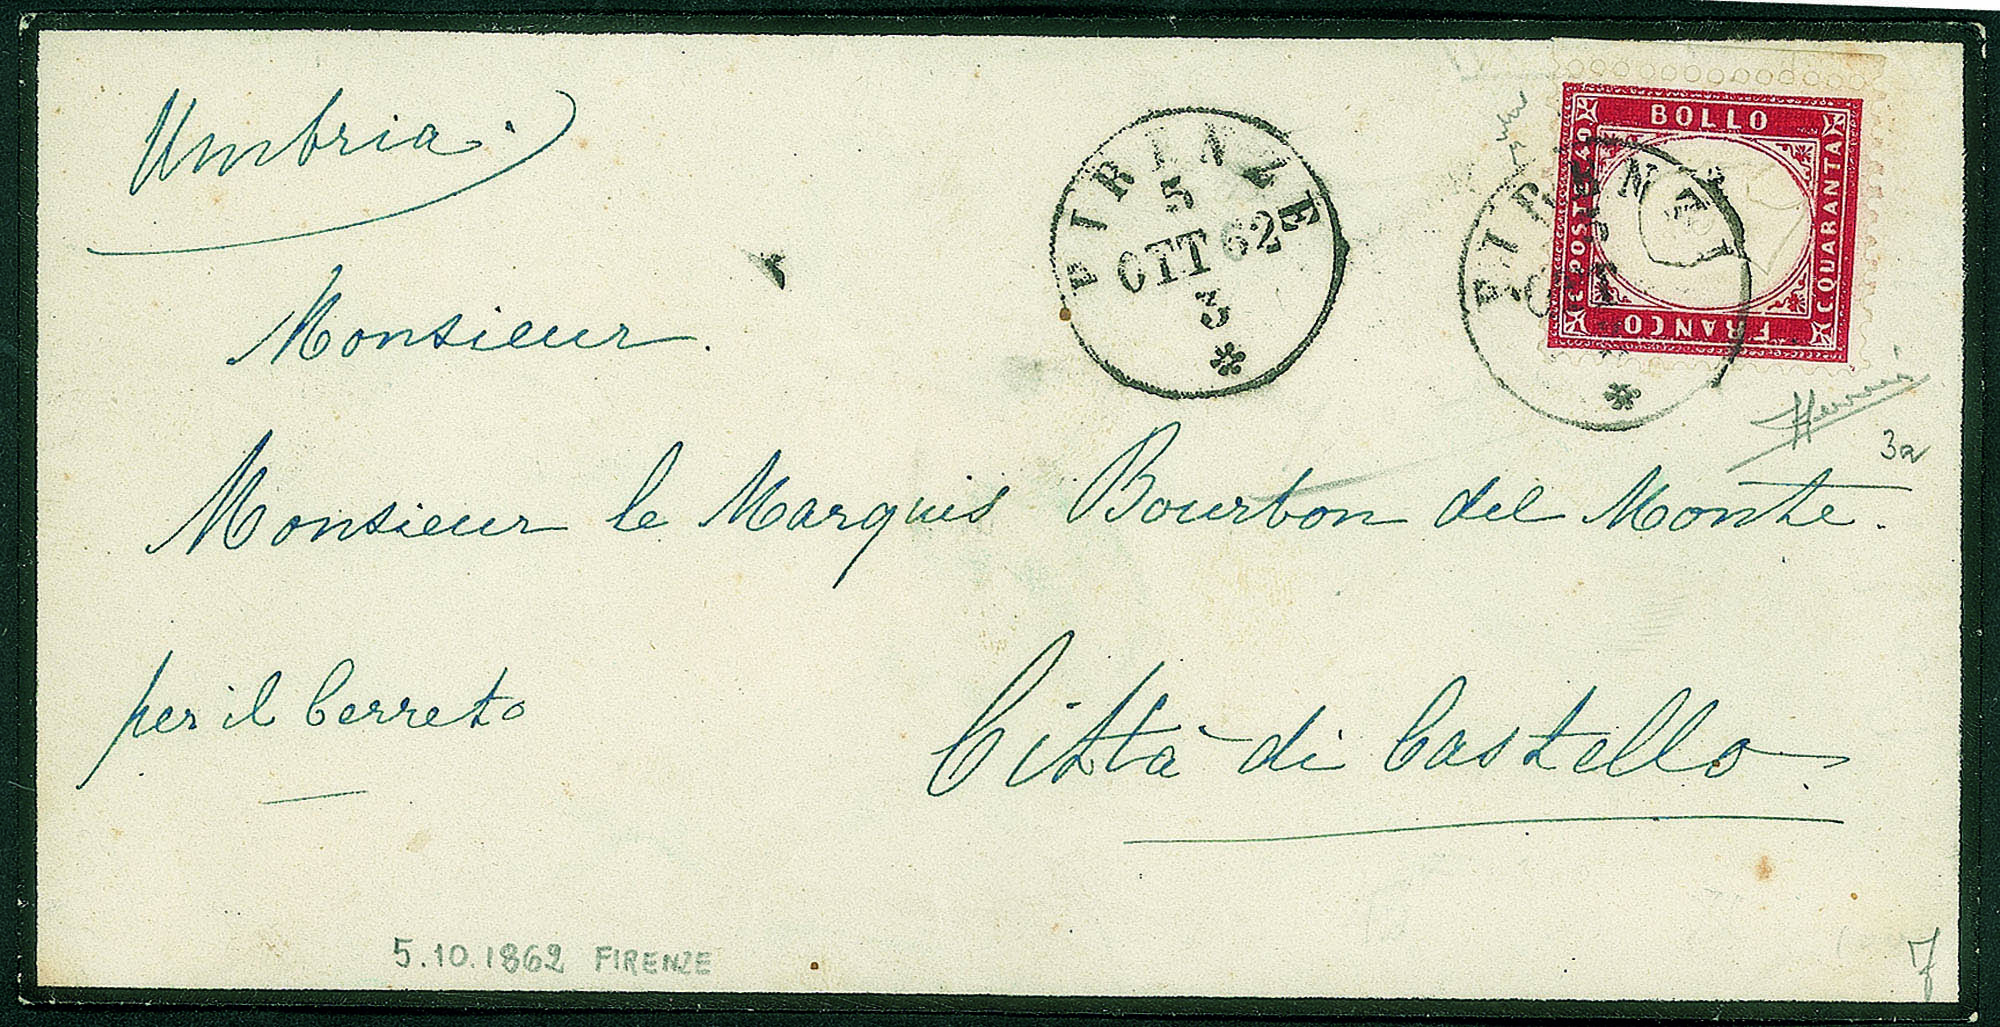 Umbria.
Monsieur.
Monsieur le Marquis Bourbon del Monte.
per il Cerreto
Città di Castello.
FIRENZE
5
OTT 62
3
*
FIRENZE
5
OTT
*
BOLLO
C. POST. 40
C QUARANTA
FRANCO
3a
5.10.1862 FIRENZE